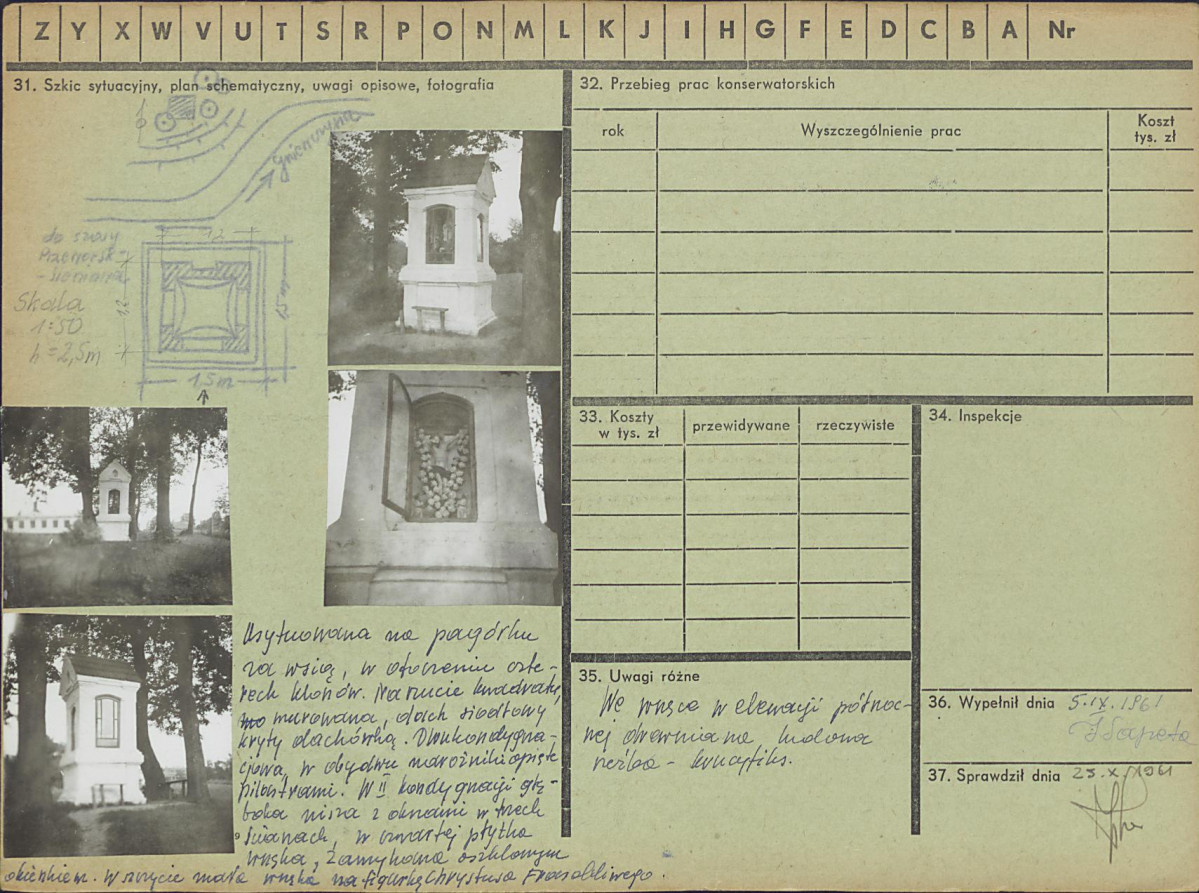 Z Y X W V U T S R P O N M L K J I H G F E D C B A Nr
31. Szkic sytuacyjny, plan schematyczny, uwagi opisowe, fotografia
do szosy
Przeworsk
- Sieniawa
Skala
1:50
h = 2,5m
1,2
1,2
1,5 m
1,5m
Usytuowana na pagórku
za wsią, w otoczeniu czte-
rech klonów. Na rzucie kwadratu,
murowana, dach siodłowy
kryty dachówką. Dwukondygna-
cjowa, w obydwu narożniki opięte
pilastrami. W II kondygnacji głę-
boka nisza z oknami w trzech
ścianach, w czwartej płytka
wnęka, zamykana oszklonym
okienkiem. W szczycie mała wnęka na figurkę Chrystusa Frasobliwego.
32. Przebieg prac konserwatorskich
rok
Wyszczególnienie prac
Koszt
tys. zł
33. Koszty
w tys. zł
przewidywane
rzeczywiste
34. Inspekcje
35. Uwagi różne
We wnęce w elewacji północ-
nej drewniana ludowa
rzeźba - krucyfiks.
36. Wypełnił dnia 5.IX.1961
37. Sprawdził dnia 25.X.1961